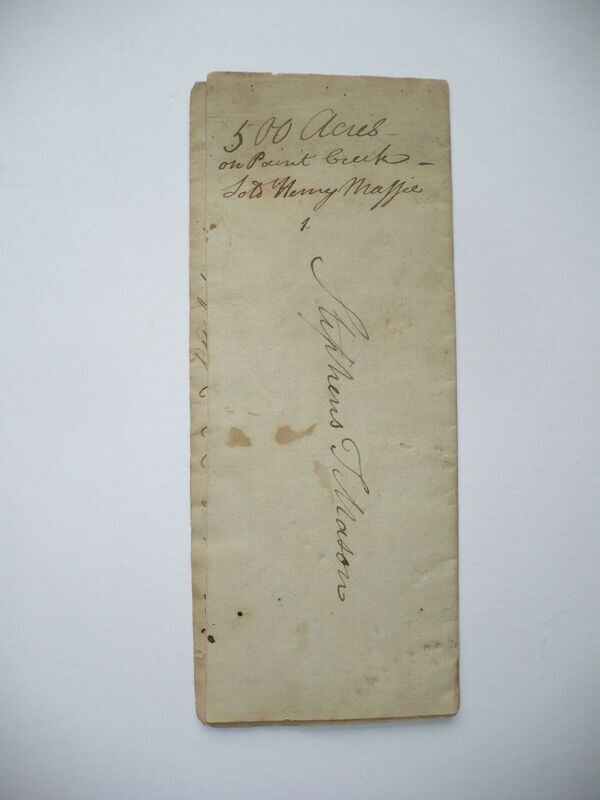 500 Acres –
on Paint Creek –
Sold Henry Massie
1.
Stephens T Mason